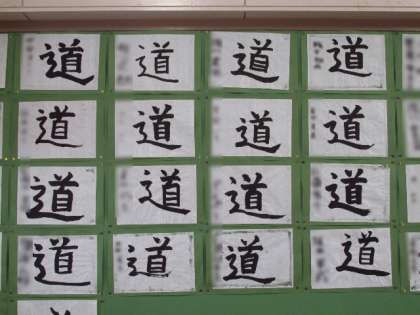 道 道 道 道
道 道 道 道
道 道 道 道
道 道 道 道